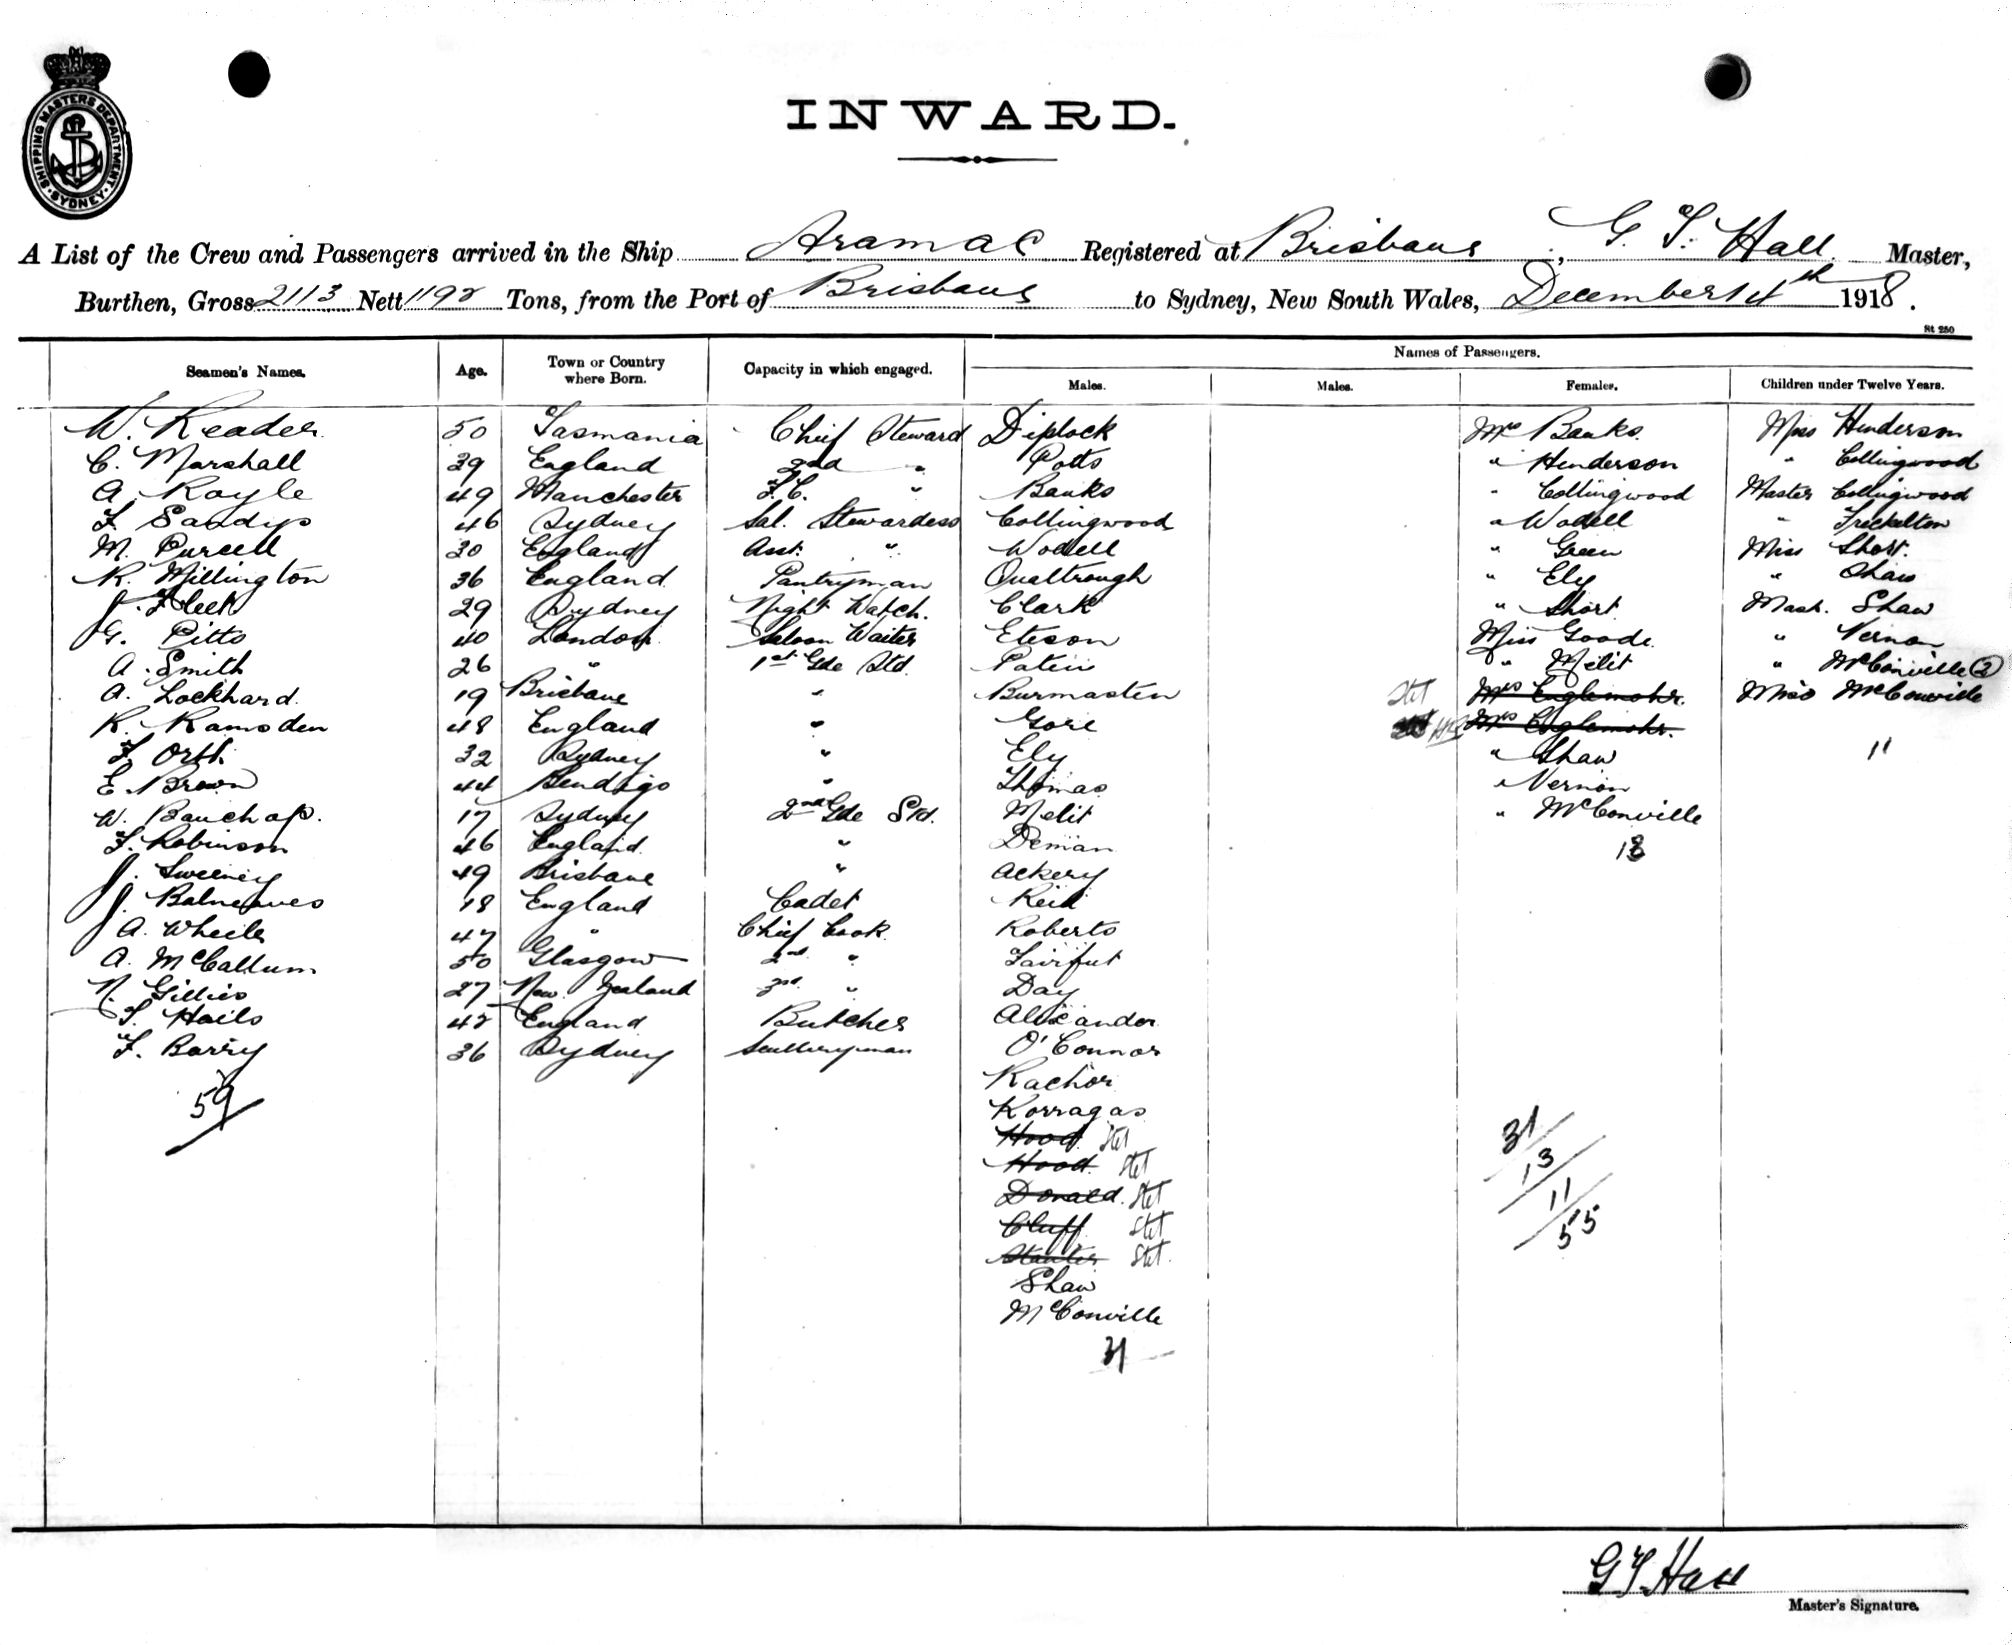 SHIPPING MASTERS DEPARTMENT. SYDNEY
INWARD.
A List of the Crew and Passengers arrived in the Ship Aramac Registered at Brisbane, G. T. Hall Master,
Burthen, Gross 2113 Nett 1192 Tons, from the Port of Brisbane to Sydney, New South Wales, December 14th 1918.
St 250
Names of Passengers.
Seamen's Names. Age. Town or Country where Born. Capacity in which engaged. Males. Males. Females. Children under Twelve Years.
W. Reader 50 Tasmania Chief Steward Diplock Mrs Banks Miss Henderson
C. Marshall 39 England 2nd " Potts " Henderson " Collingwood
A. Royle 49 Manchester F.C. " Banks " Collingwood Master Collingwood
F. Sandys 46 Sydney Sal. Stewardess Collingwood " Wodell " Frickelton
M. Purcell 30 England Asst. " Wodell " Green Miss Short.
R. Millington 36 England Pantryman Qualtrough " Ely " Shaw
J. Fleet 29 Sydney Night Watch. Clark " Short Mast. Shaw
G. Pitts 40 London Saloon Waiter Eteson Miss Goode " Vernon
A. Smith 26 " 1st Gde Std. Patin " Melit " McConville (2)
A. Lockhard 19 Brisbane " Burmasten Stet Mrs Englemohr. Miss McConville
R. Ramsden 48 England " Gore Mrs Englemohr.
F. Orth 32 Sydney " Ely " Shaw 11
E. Brown 44 Bendigo " Thomas " Vernon
W. Bauchop. 17 Sydney 2nd Gde Std. Melit " McConville
F. Robinson 46 England " Deman 13
J. Sweeney 49 Brisbane " Ackery
J. Balneaves 18 England Cadet Reid
A. Wheeler 47 " Chief Cook Roberts
A. McCallum 50 Glasgow 2nd " Fairfut
N. Gillies 27 New Zealand 3rd " Day
T. Hails 42 England Butcher Alexander
F. Barry 36 Sydney Sculleryman O'Connor
59 Rachor
Korragas
Hood Stet
Hood Stet
Donald Stet
Cluff Stet
Stanter Stet
Shaw
McConville
31
31
13
11
55
G T Hall
Master's Signature.